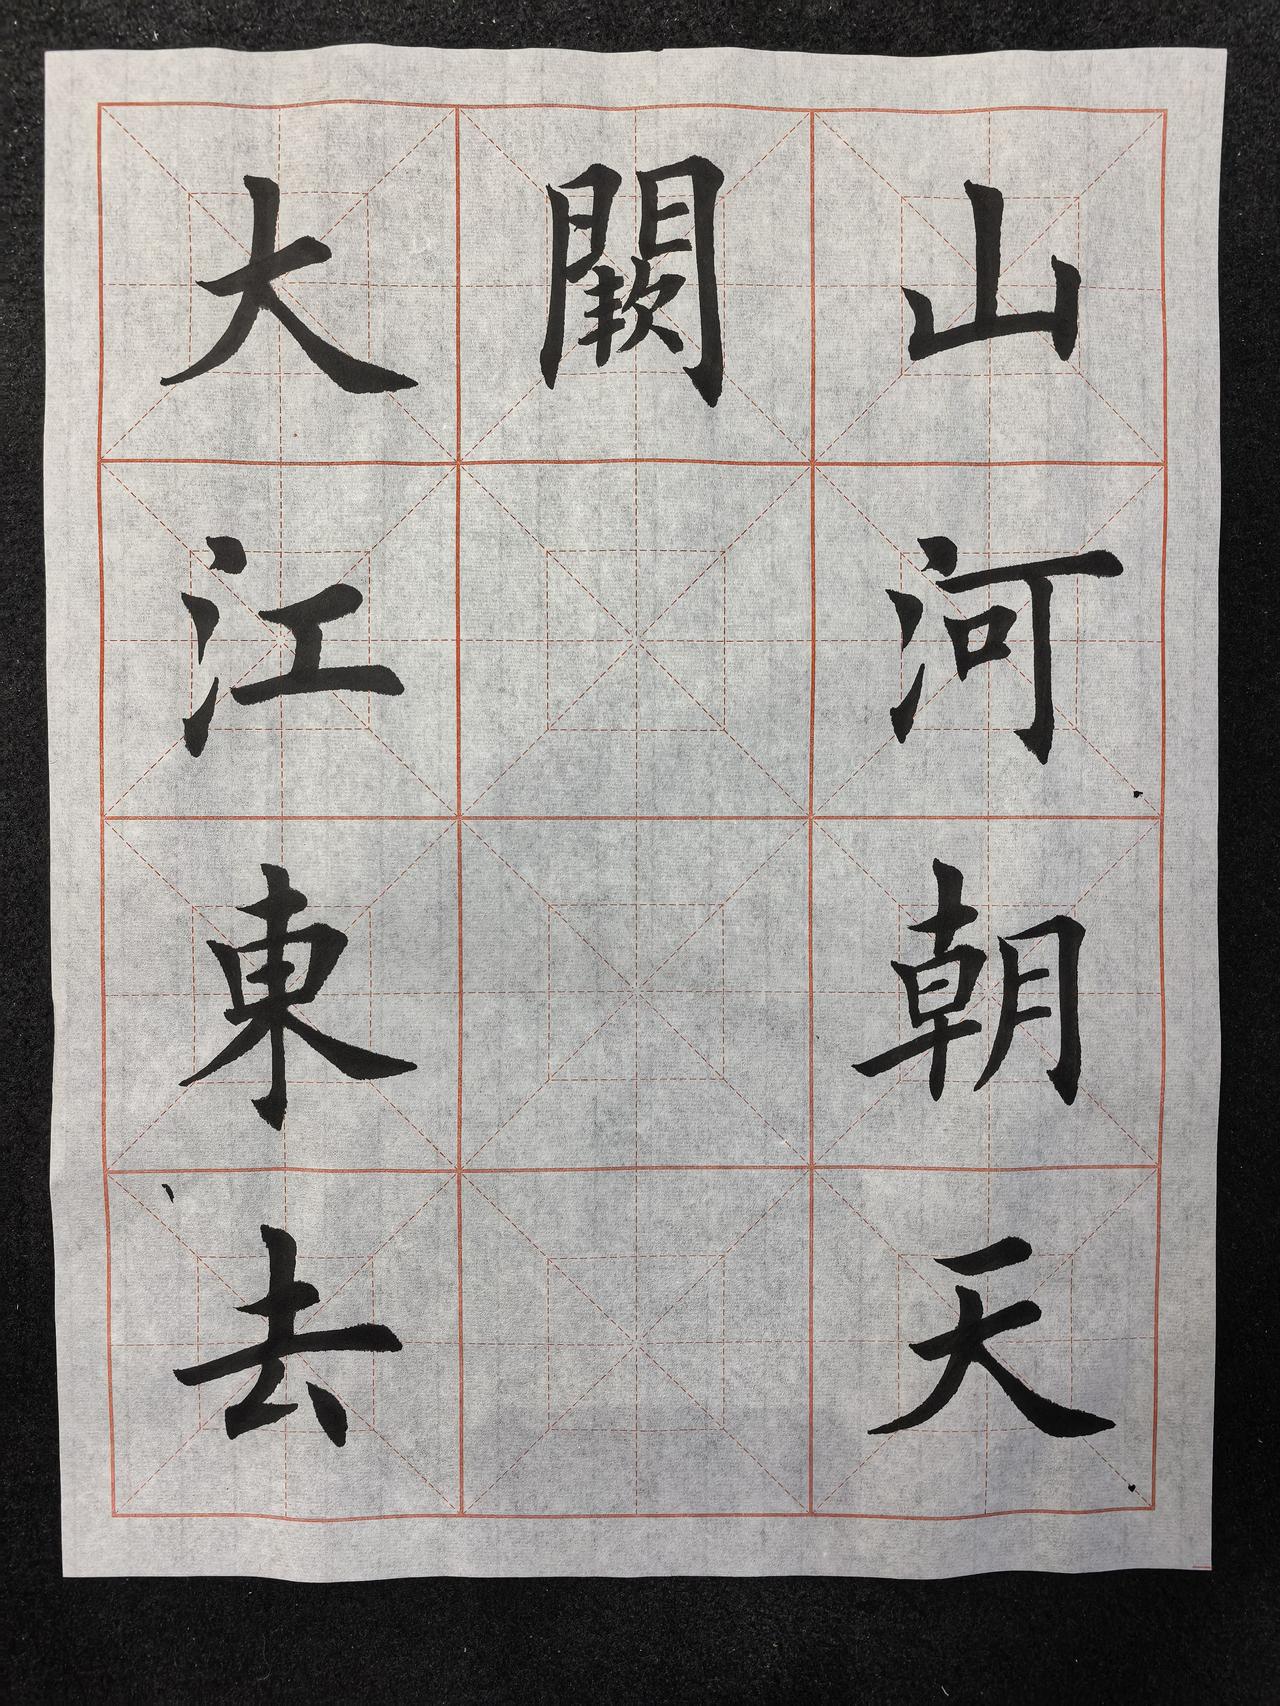 山河朝天
闕
大江東去